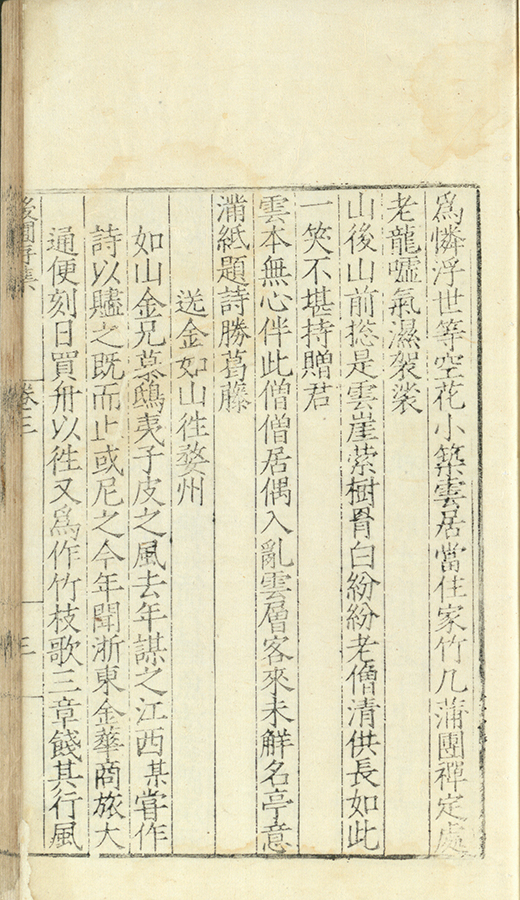 為憐浮世等空花小築雲居當住家竹几蒲團禪定處
老龍噓氣濕袈裟
山後山前揔是雲崖縈樹罥白紛紛老僧清供長如此
一笑不堪持贈君
雲本無心伴此僧僧居偶入亂雲層客來未觧名亭意
滿紙題詩勝葛藤
送金如山徃婺州
如山金兄慕鴟夷子皮之風去年謀之江西某嘗作
詩以贐之既而止或尼之今年聞浙東金華商旅大
通便刻日買舟以徃又為作竹枝歌三章餞其行風
卷三
三